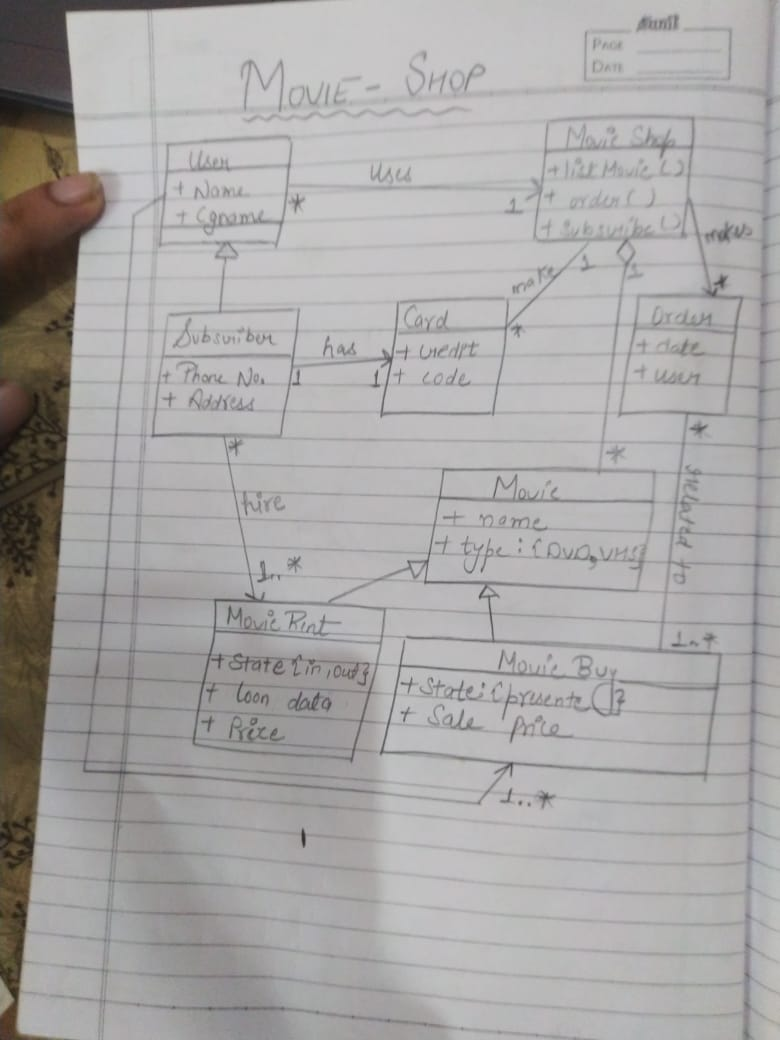 PAGE
DATE
MOVIE - SHOP
User
+ Name
+ Cgname
*
Uses
1
Movie Shop
+ list Movie ()
+ order ()
+ Subsvribe ()
makes
*
1
1
make
*
Subsvriber
+ Phone No.
+ Address
1
has
1
Card
+ credpt
+ code
Order
+ date
+ user
*
related to
1..*
*
hire
1..*
*
Movie
+ name
+ type : {DVD, VHS}
Movie Rent
+ State {in, out}
+ loon data
+ Prize
Movie Buy
+ State : {presente ()}
+ Sale Price
1..*